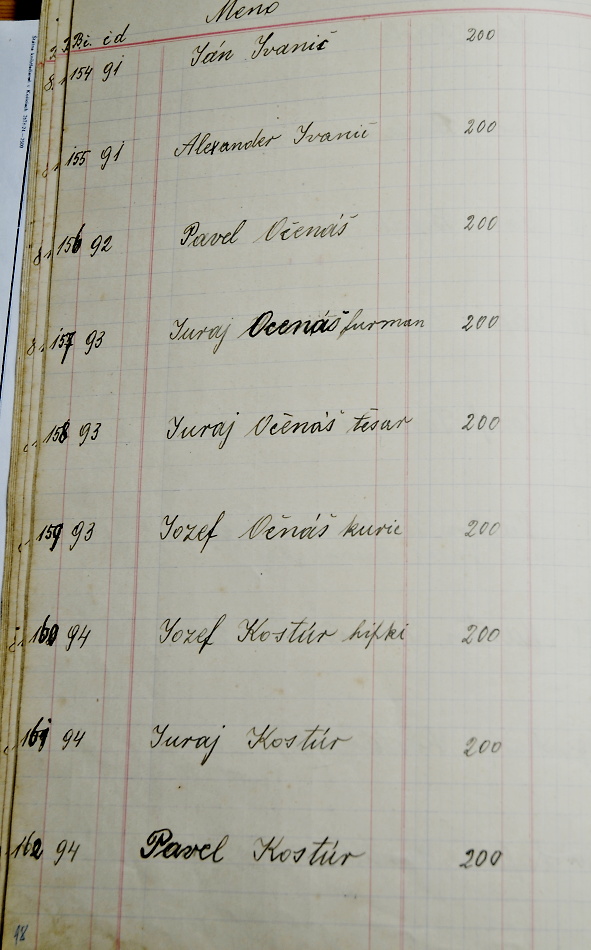 Meno
Bč. čd
154 91 Ján Ivanič 200
155 91 Alexander Ivanič 200
156 92 Pavel Očenáš 200
157 93 Juraj Ocenáš furman 200
158 93 Juraj Očenáš tesar 200
159 93 Jozef Očnáš kuric 200
160 94 Jozef Kostúr 200
161 94 Juraj Kostúr 200
162 94 Pavel Kostúr 200